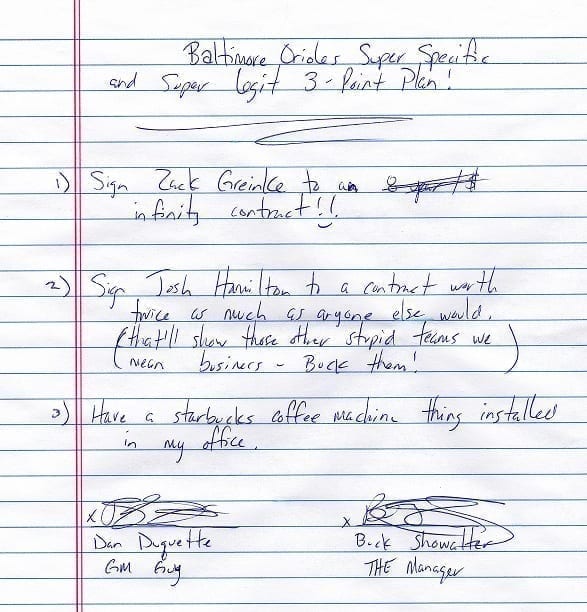 Baltimore Orioles Super Specific
and Super Legit 3-Point Plan!
1) Sign Zack Greinke to an
infinity contract!!
2) Sign Josh Hamilton to a contract worth
twice as much as anyone else would.
(that'll show those other stupid teams we
mean business - Buck them!)
3) Have a starbucks coffee machine thing installed
in my office.
x
x
Dan Duquette
Buck Showalter
GM Guy
THE Manager